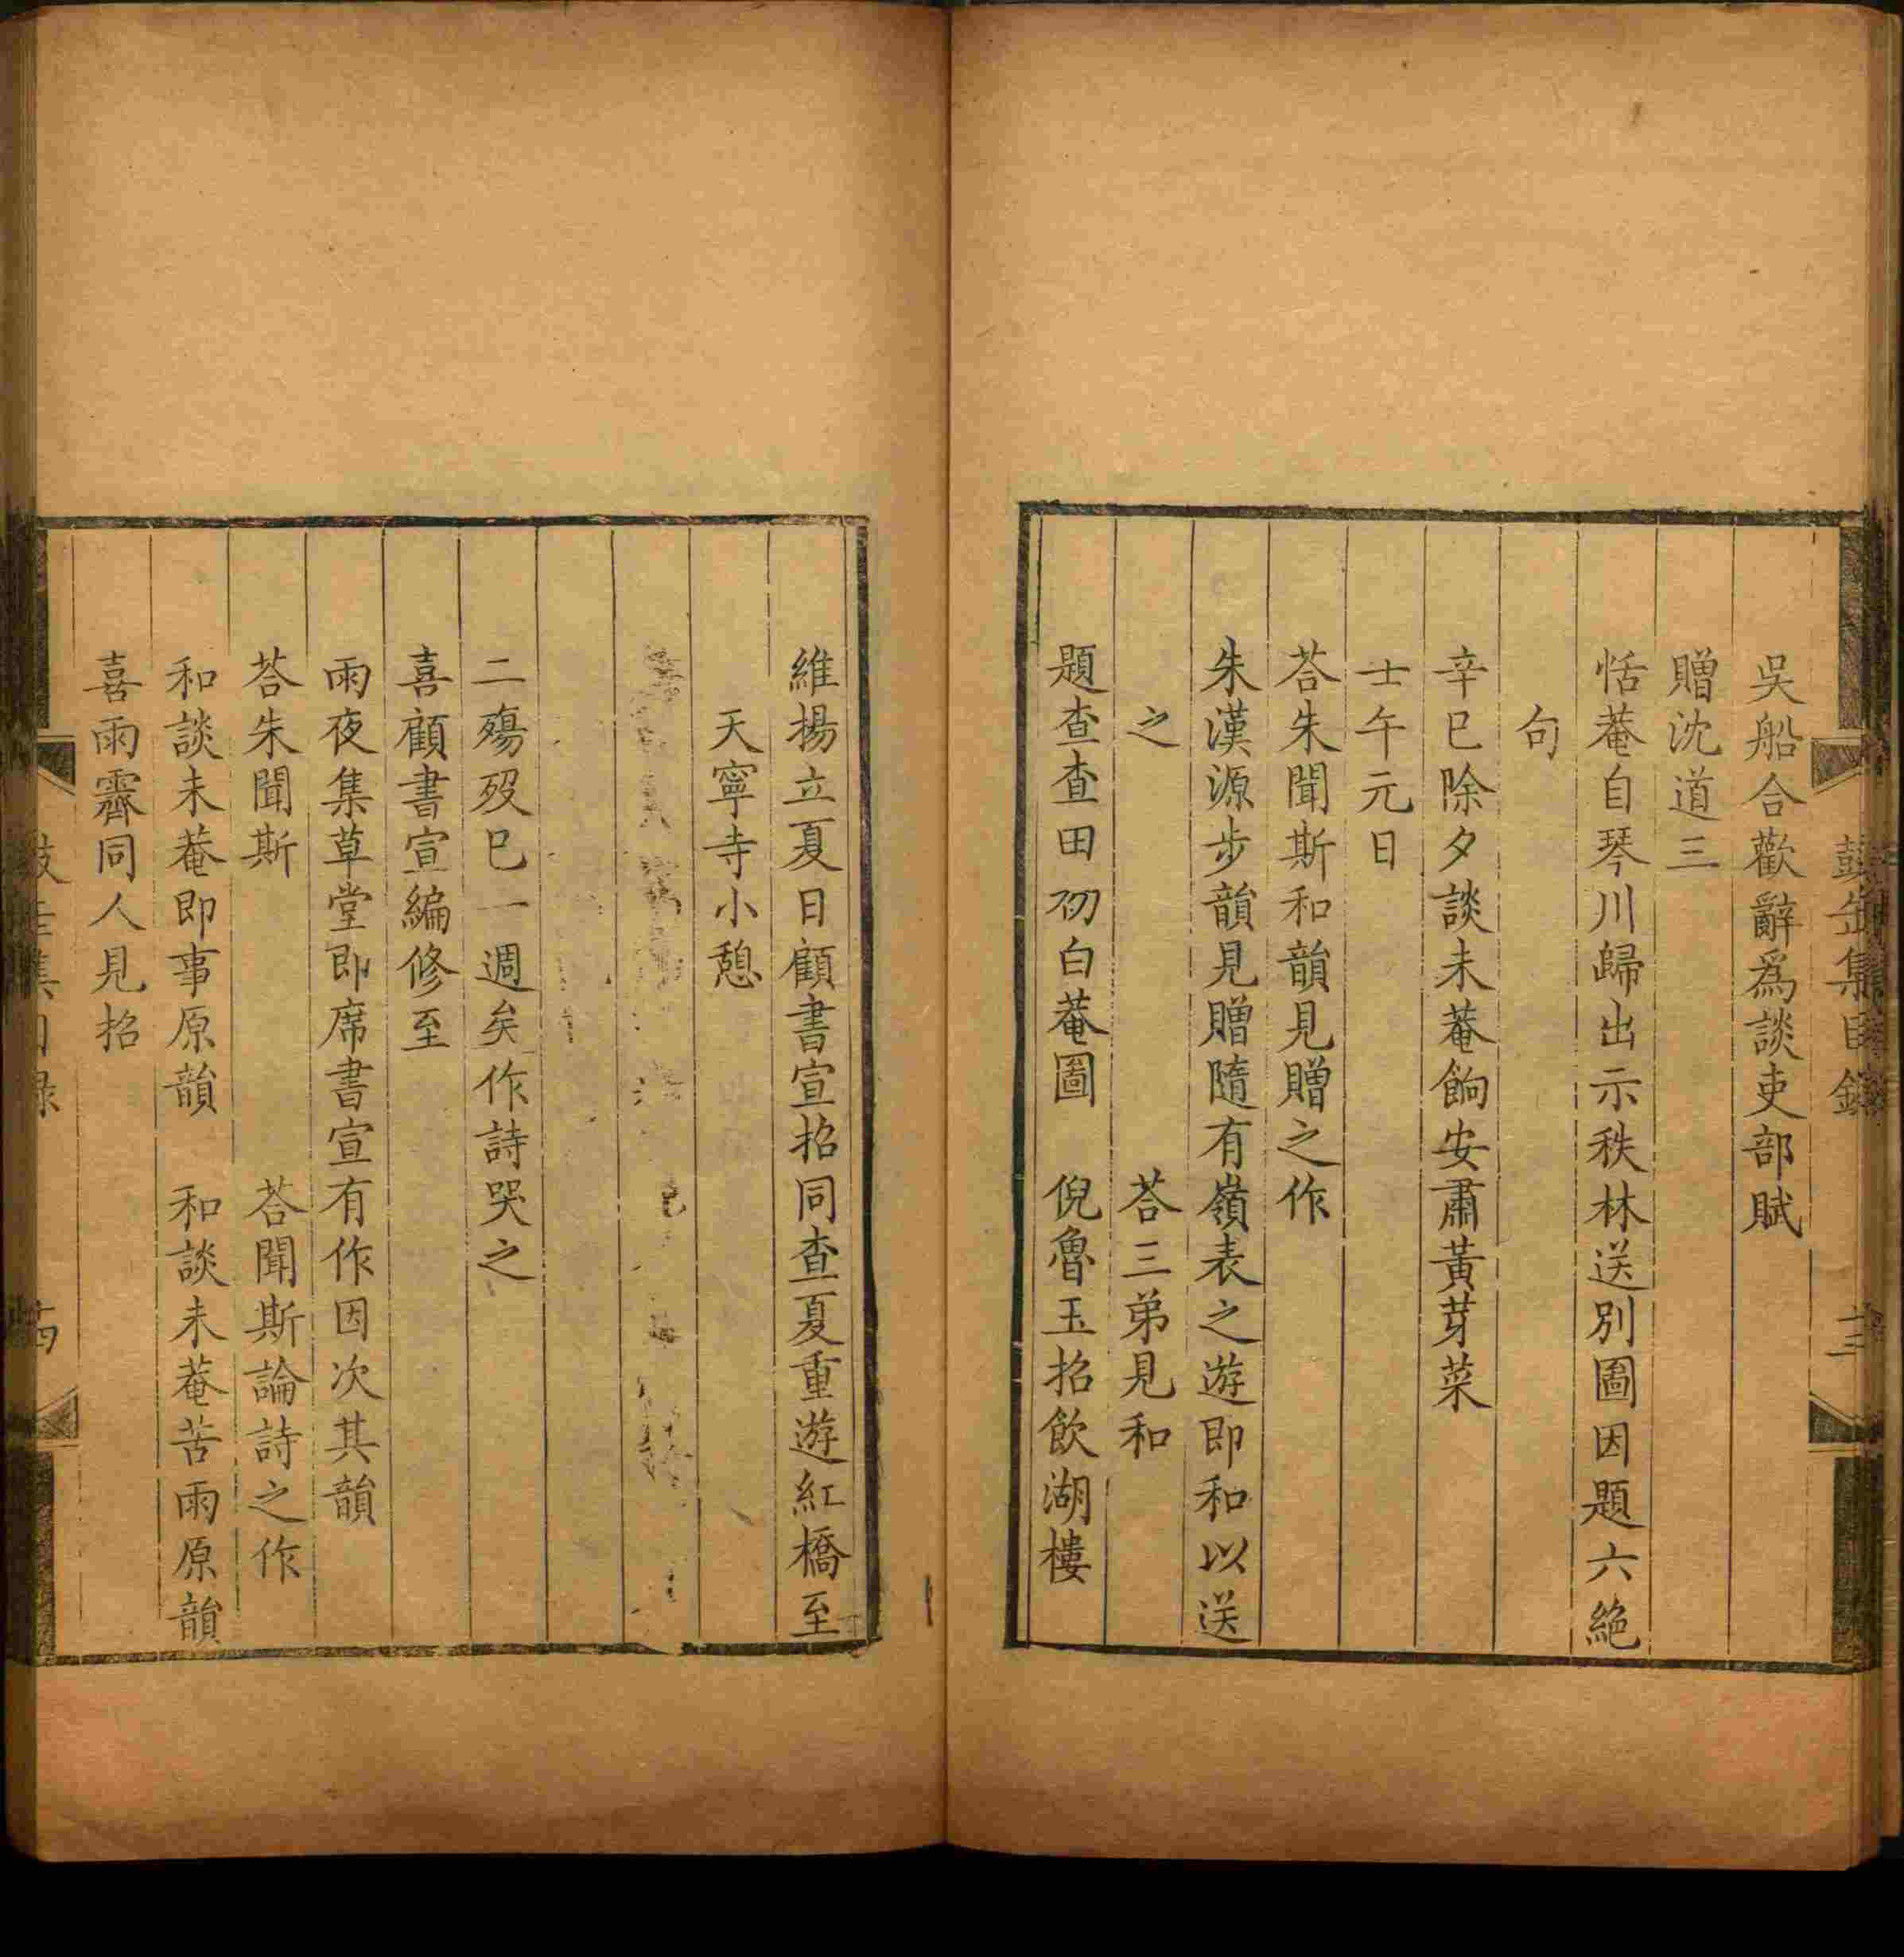 吳船合歡辭爲談吏部賦
贈沈道三
恬菴自琴川歸出示秩林送別圖因題六絶
句
辛巳除夕談未菴餉安肅黃芽菜
士午元日
荅朱聞斯和韻見贈之作
朱漢源步韻見贈隨有嶺表之遊即和以送
之　荅三弟見和
題查查田初白菴圖　倪魯玉招飲湖樓
集目錄
十三
維揚立夏日顧書宣招同查夏重遊紅橋至
天寧寺小憩
二殤歿巳一週矣作詩哭之
喜顧書宣編修至
雨夜集草堂即席書宣有作因次其韻
荅朱聞斯　荅聞斯論詩之作
和談未菴即事原韻　和談未菴苦雨原韻
喜雨霽同人見招